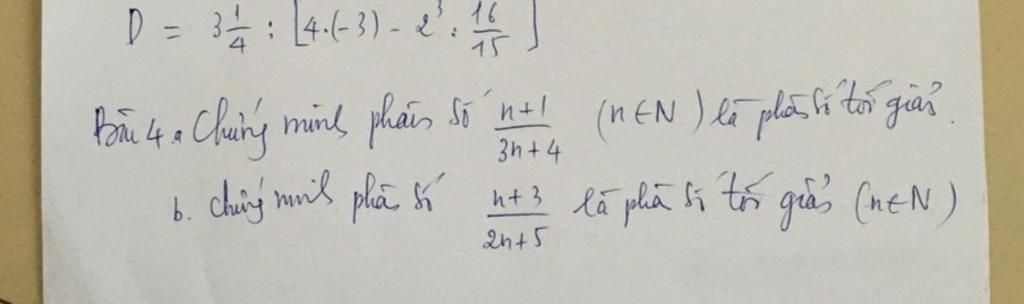 D = 3 1/4 : [4.(-3) - 2³ : 16/15 ]
Bài 4 a Chứng minh phân số n+1/3n+4 (n ∈ N) là phân số tối giản.
b. Chứng minh phân số n+3/2n+5 là phân số tối giản (n ∈ N)